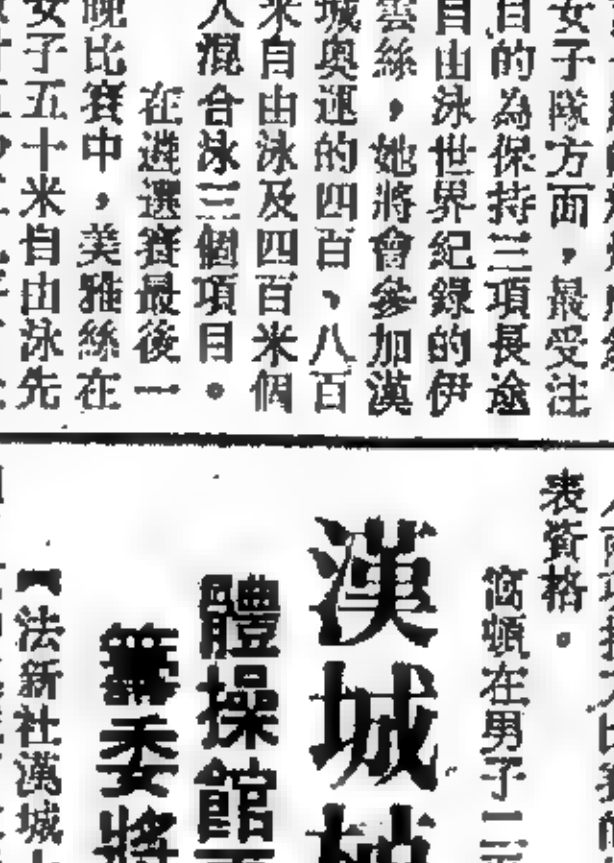 女子隊方面，最受注
目的為保持三項長途
自由泳世界紀錄的伊
雲絲，她將會參加漢
城奧運的四百、八百
米自由泳及四百米個
人混合泳三個項目。
在遴選賽最後一
晚比賽中，美雅絲在
女子五十米自由泳先
表資格。
在男子二
漢城
體操館
籌委將
【法新社漢城